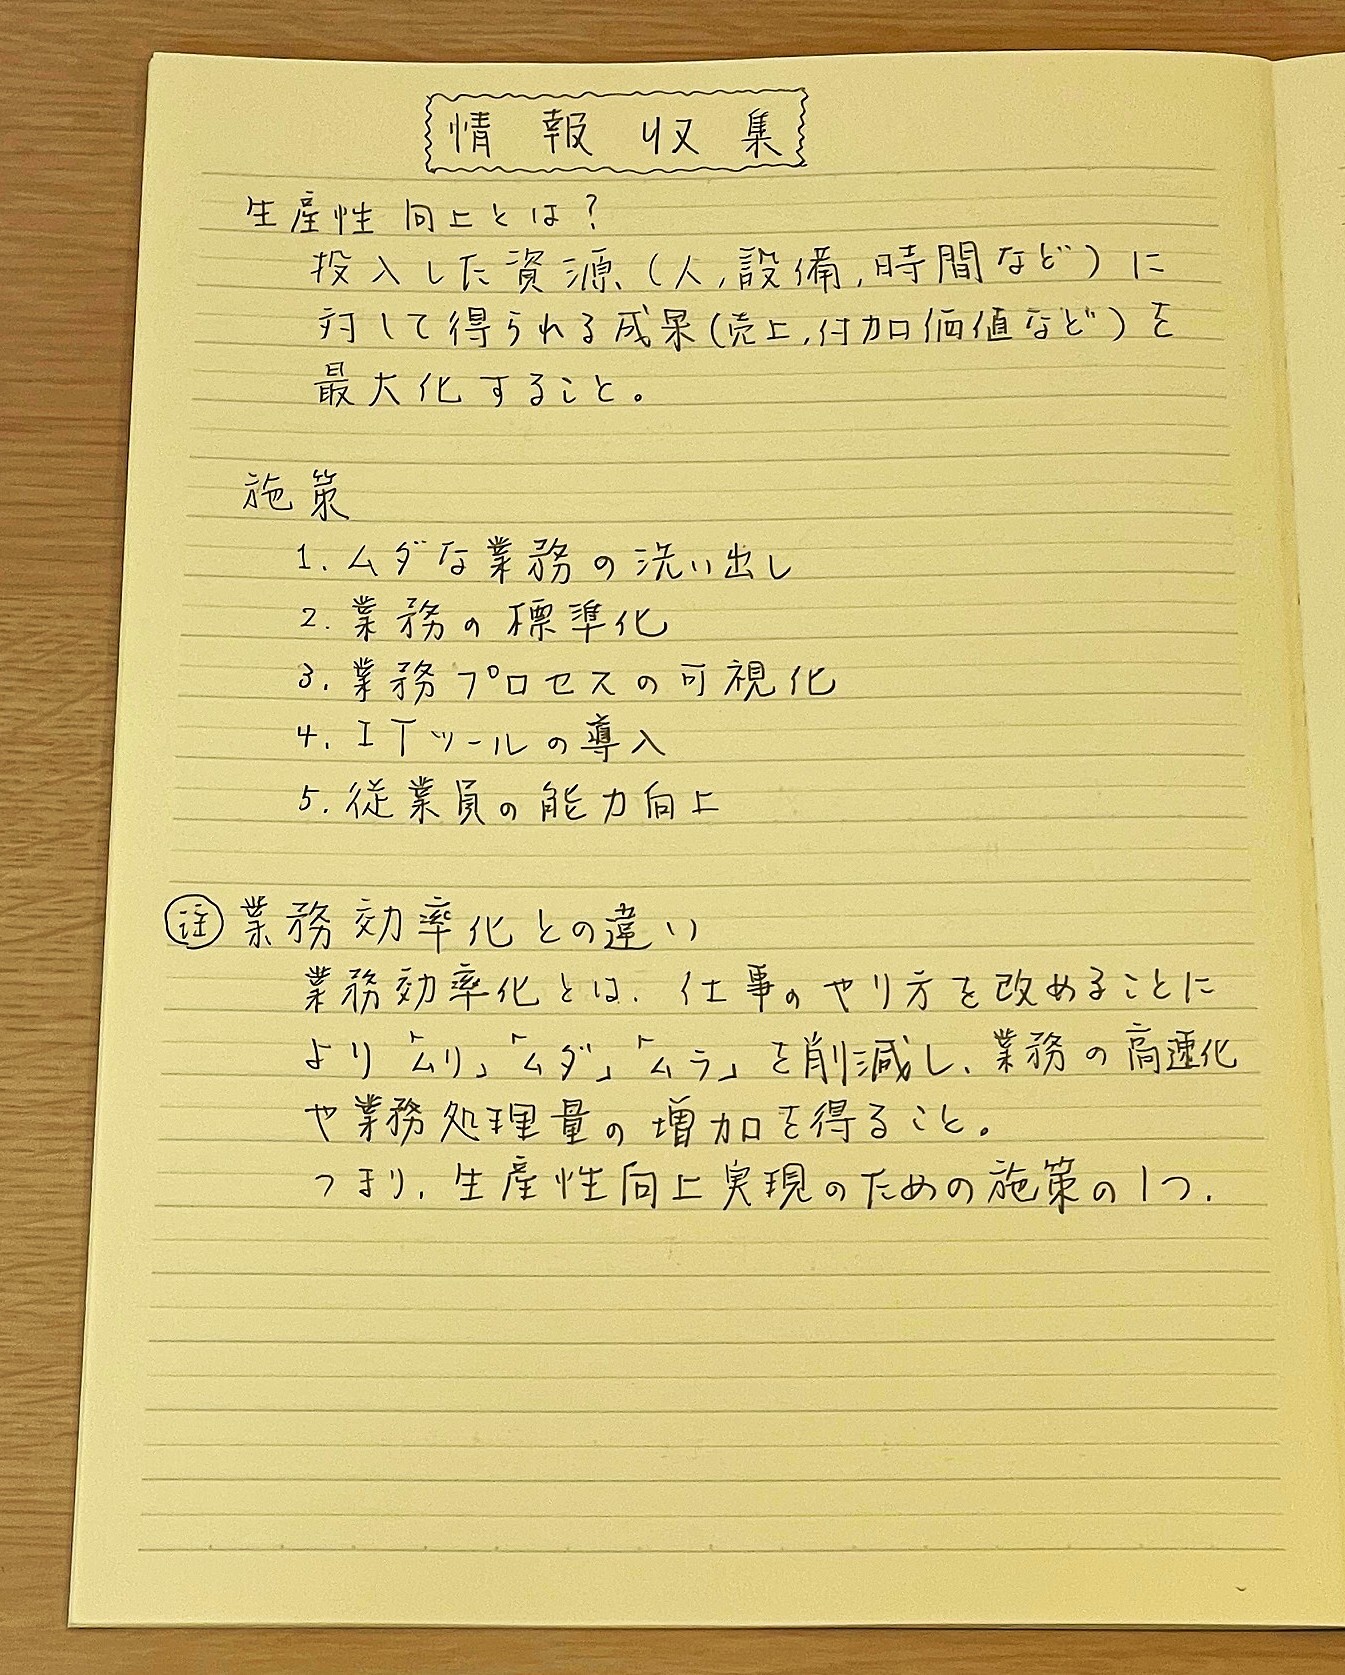 情報収集
生産性向上とは?
投入した資源(人,設備,時間など)に
対して得られる成果(売上,付加価値など)を
最大化すること。
施策
1. ムダな業務の洗い出し
2. 業務の標準化
3. 業務プロセスの可視化
4. ITツールの導入
5. 従業員の能力向上
注 業務効率化との違い
業務効率化とは、仕事のやり方を改めることに
より「ムリ」「ムダ」「ムラ」を削減し、業務の高速化
や業務処理量の増加を得ること。
つまり、生産性向上実現のための施策の1つ.